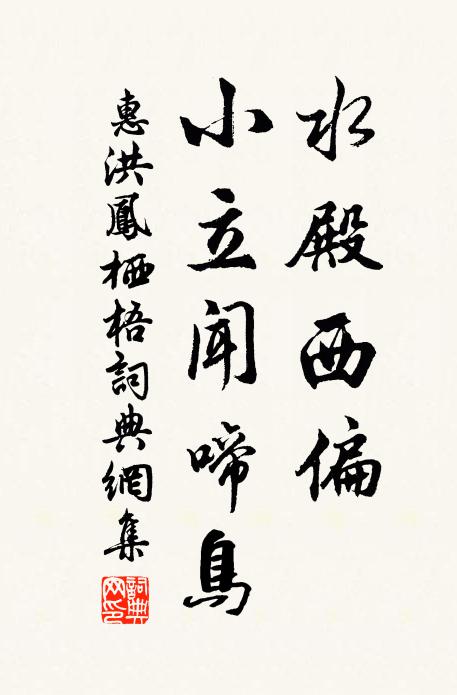 水殿西偏
小立聞啼鳥
惠洪鳳栖梧詞典網集
詞典
网印